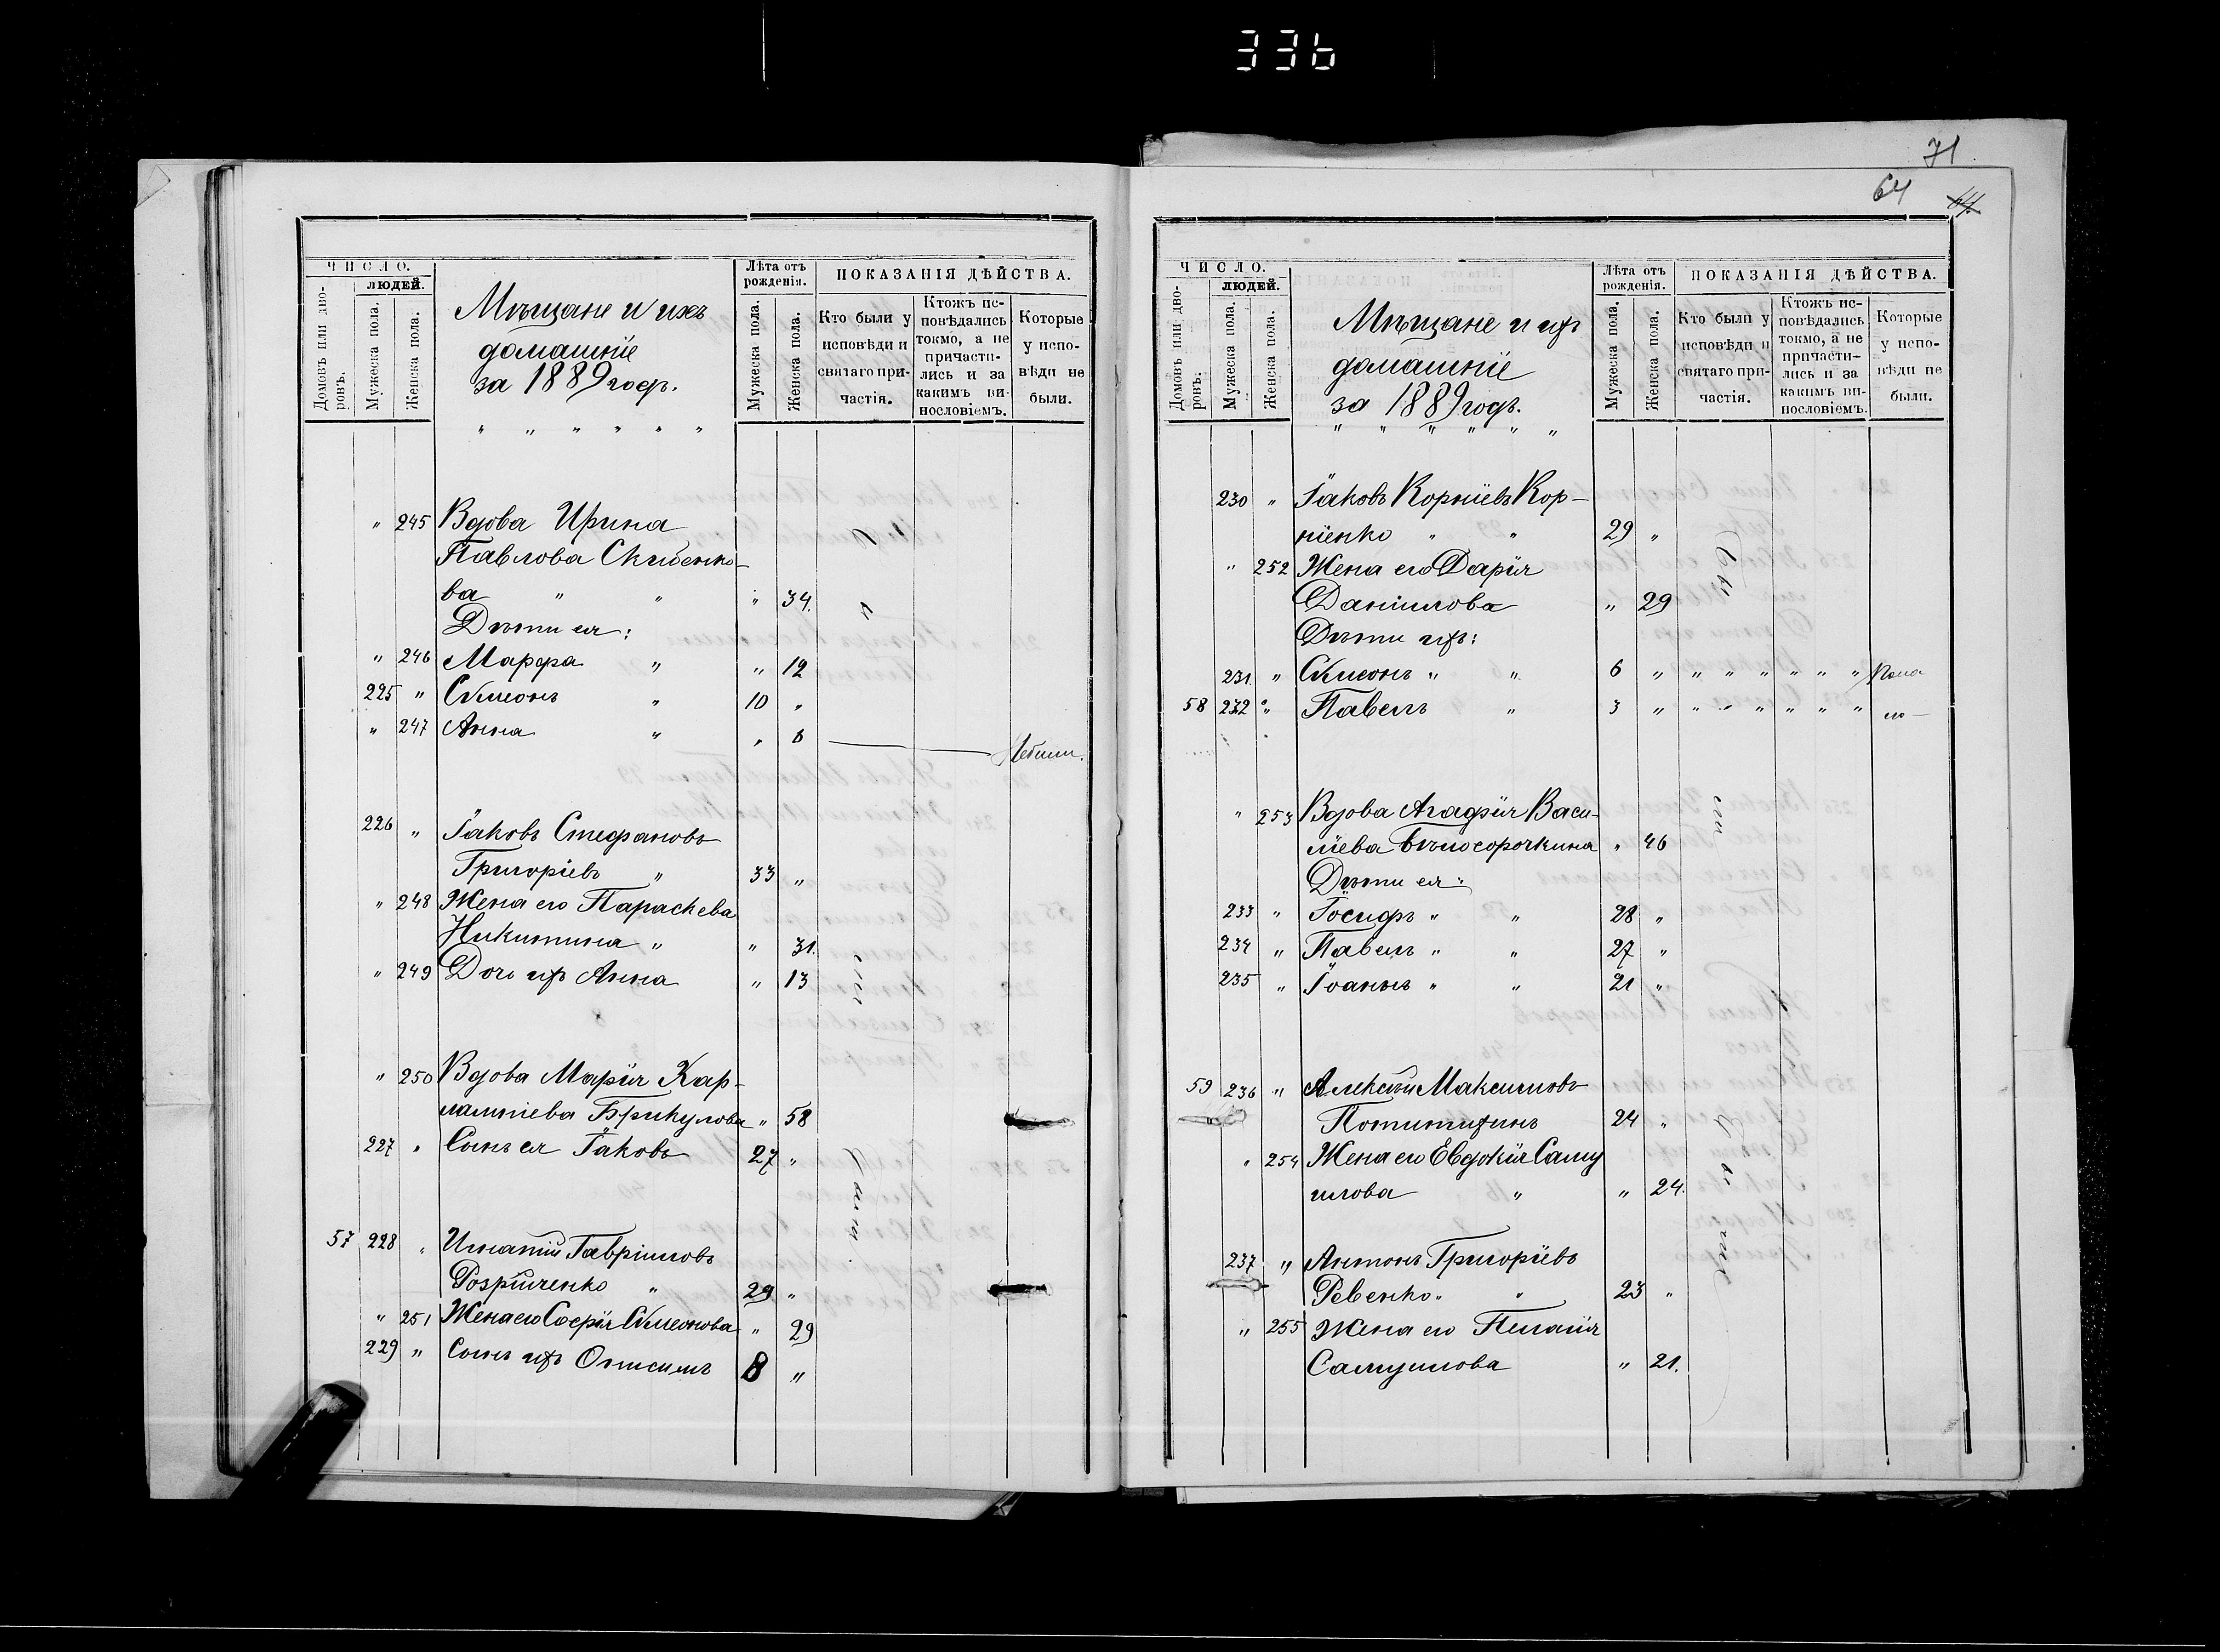 336
ЧИСЛО.
Домовъ или дворовъ.
ЛЮДЕЙ.
Мужеска пола.
Женска пола.
Мѣщане и ихъ
домашніе
за 1889 годъ.
" " " " " "
Лѣта отъ рожденія.
Мужеска пола.
Женска пола.
ПОКАЗАНІЯ ДѢЙСТВА.
Кто были у исповѣди и святаго причастія.
Ктожъ исповѣдались токмо, а не причастились и за какимъ винословіемъ.
Которые у исповѣди не были.
" 245 Вдова Ирина
Павлова Скибенко-
ва " " " 34.
Дѣти ея:
" 246 Марфа " " 12
225 " Сѵмеонъ " 10 "
" 247 Анна " " 6 Небыли.
226 " Іаковъ Стефановъ
Григоріевъ " 33 "
" 248 Жена его Параскева
Никитина " " 31.
" 249 Дочь ихъ Анна " 13
" 250 Вдова Марія Хар-
лампіева Брикулова " 58
227 " Сынъ ея Іаковъ 27 "
57 228 " Игнатій Гавріиловъ
" 29 "
" 251 Жена его Софія Сѵмеонова " 29
229 " Сынъ ихъ Онисимъ 8 "
Были
71
64
64.
ЧИСЛО.
Домовъ или дворовъ.
ЛЮДЕЙ.
Мужеска пола.
Женска пола.
Мѣщане и ихъ
домашніе
за 1889 годъ.
" " " " " "
Лѣта отъ рожденія.
Мужеска пола.
Женска пола.
ПОКАЗАНІЯ ДѢЙСТВА.
Кто были у исповѣди и святаго причастія.
Ктожъ исповѣдались токмо, а не причастились и за какимъ винословіемъ.
Которые у исповѣди не были.
230 " Іаковъ Корніевъ Кор-
ніенко " " 29 "
" 252 Жена его Дарія
Даніилова " 29
Дѣти ихъ:
231 " Сѵмеонъ " " 6 " " " " " " "
58 232 " Павелъ " 3 " " " " " " "
" 253 Вдова Агафія Васи-
ліева Бѣлосорочкина " 46
Дѣти ея:
233 " Іосифъ " " 28 "
234 " Павелъ " " 27 "
235 " Іоаннъ " " 21 "
59 236 " Алексѣй Максимовъ
24 "
" 254 Жена его Евдокія Саму
илова " " 24.
237 " Антонъ Григоріевъ
Ревенко " " 23 "
" 255 Жена его Пелагія
Самуилова " 21.